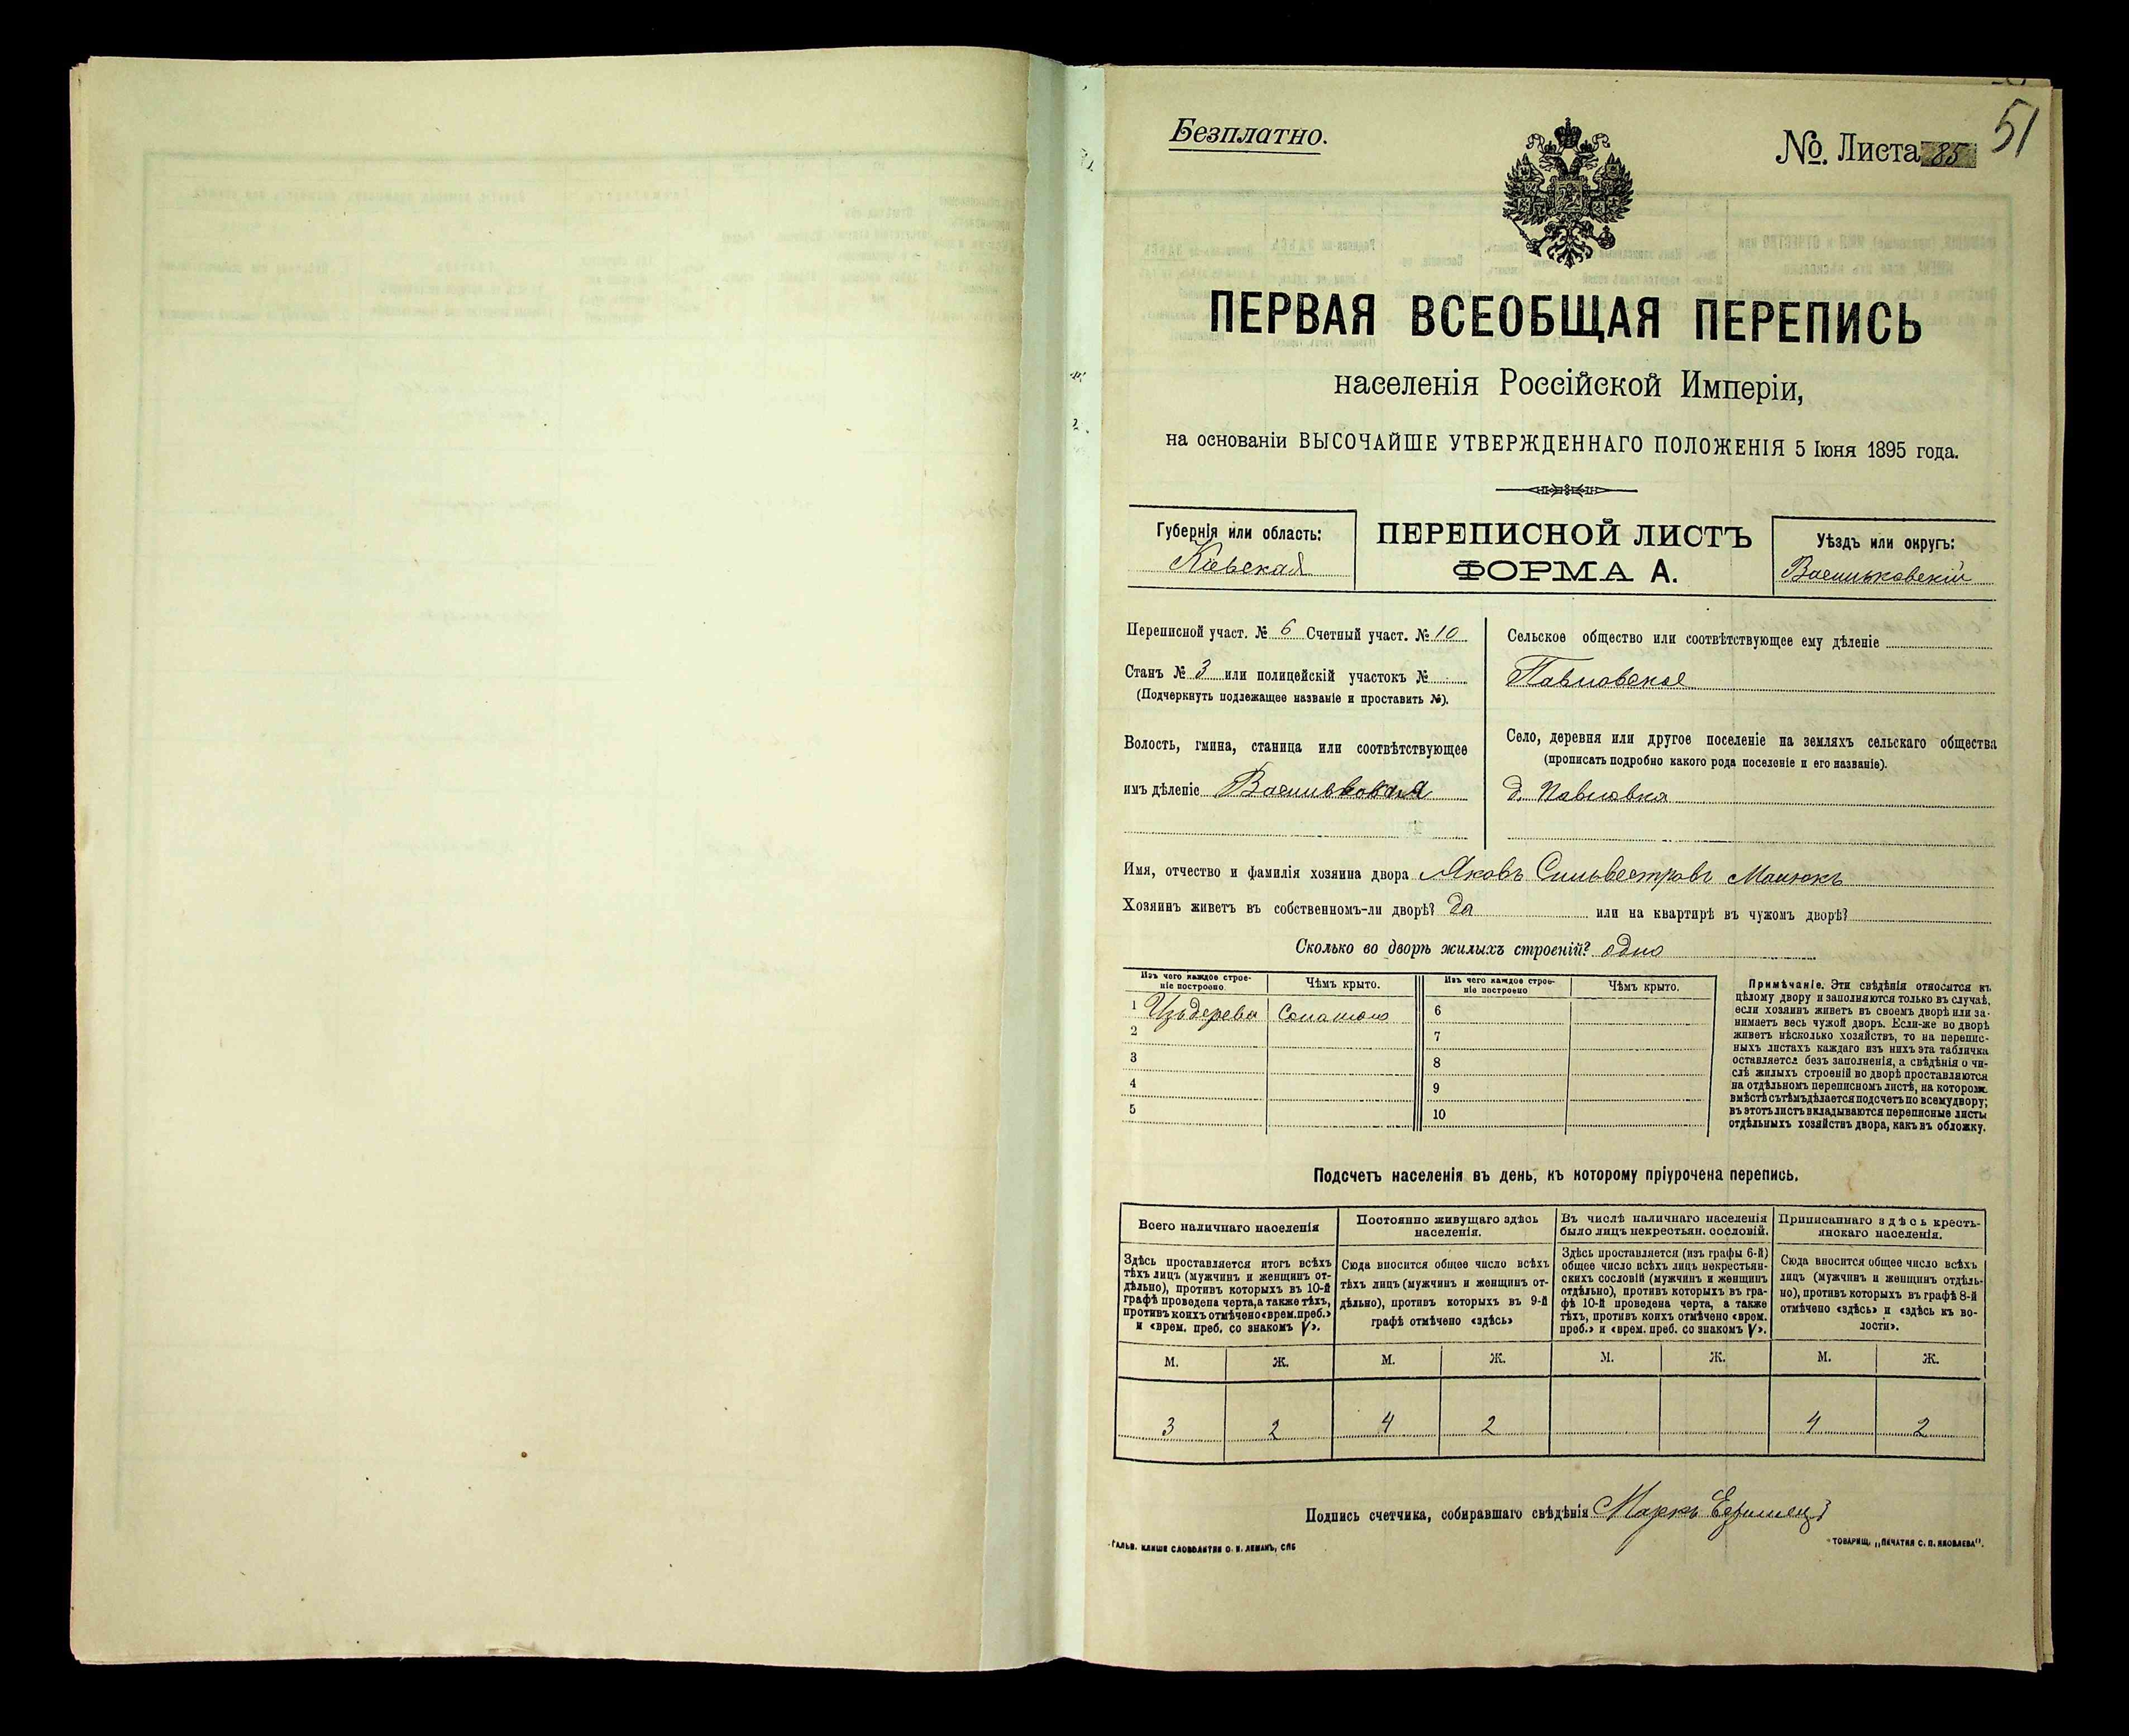 51
Безплатно.
№. Листа 85
ПЕРВАЯ ВСЕОБЩАЯ ПЕРЕПИСЬ
населенія Россійской Имперіи,
на основаніи ВЫСОЧАЙШЕ УТВЕРЖДЕННАГО ПОЛОЖЕНІЯ 5 Іюня 1895 года.
Губернія или область:
Кіевская
ПЕРЕПИСНОЙ ЛИСТЪ
ФОРМА А.
Уѣздъ или округъ:
Васильковскій
Переписной участ. № 6 Счетный участ. № 10
Станъ № 3 или полицейскій участокъ №
(Подчеркнуть подлежащее названіе и проставить №).
Волость, гмина, станица или соотвѣтствующее
имъ дѣленіе Васильковская
Сельское общество или соотвѣтствующее ему дѣленіе
Павловское
Село, деревня или другое поселеніе на земляхъ сельскаго общества
(прописать подробно какого рода поселеніе и его названіе).
д. Павловка
Имя, отчество и фамилія хозяина двора Яковъ Сильвестровъ
Хозяинъ живетъ въ собственномъ-ли дворѣ? да или на квартирѣ въ чужомъ дворѣ?
Сколько во дворѣ жилыхъ строеній? одно
Изъ чего каждое строе-
ніе построено.
Чѣмъ крыто.
Изъ чего каждое строе-
ніе построено
Чѣмъ крыто.
1 Изъ дерева Соломою 6
2 7
3 8
4 9
5 10
Примѣчаніе. Эти свѣдѣнія относятся къ
цѣлому двору и заполняются только въ случаѣ,
если хозяинъ живетъ въ своемъ дворѣ или за-
нимаетъ весь чужой дворъ. Если-же во дворѣ
живетъ нѣсколько хозяйствъ, то на перепис-
ныхъ листахъ каждаго изъ нихъ эта табличка
оставляется безъ заполненія, а свѣдѣнія о чи-
слѣ жилыхъ строеній во дворѣ проставляются
на отдѣльномъ переписномъ листѣ, на которомъ
вмѣстѣ съ тѣмъ дѣлается подсчетъ по всему двору;
въ этотъ листъ вкладываются переписные листы
отдѣльныхъ хозяйствъ двора, какъ въ обложку.
Подсчетъ населенія въ день, къ которому пріурочена перепись.
Всего наличнаго населенія
Здѣсь проставляется итогъ всѣхъ
тѣхъ лицъ (мужчинъ и женщинъ от-
дѣльно), противъ которыхъ въ 10-й
графѣ проведена черта, а также тѣхъ,
противъ коихъ отмѣчено «врем. преб.»
и «врем. преб. со знакомъ V».
Постоянно живущаго здѣсь
населенія.
Сюда вносится общее число всѣхъ
тѣхъ лицъ (мужчинъ и женщинъ от-
дѣльно), противъ которыхъ въ 9-й
графѣ отмѣчено «здѣсь»
Въ числѣ наличнаго населенія
было лицъ некрестьян. сословій.
Здѣсь проставляется (изъ графы 6-й)
общее число всѣхъ лицъ некрестьян-
скихъ сословій (мужчинъ и женщинъ
отдѣльно), противъ которыхъ въ гра-
фѣ 10-й проведена черта, а также
тѣхъ, противъ коихъ отмѣчено «врем.
преб.» и «врем. преб. со знакомъ V».
Приписаннаго здѣсь кресть-
янскаго населенія.
Сюда вносится общее число всѣхъ
лицъ (мужчинъ и женщинъ отдѣль-
но), противъ которыхъ въ графѣ 8-й
отмѣчено «здѣсь» и «здѣсь къ во-
лости».
М. Ж. М. Ж. М. Ж. М. Ж.
3 2 4 2 4 2
Подпись счетчика, собиравшаго свѣдѣнія Маркъ
ГАЛЬВ. КЛИШЕ СЛОВОЛИТНИ О. И. ЛЕМАНЪ, СПБ
ТОВАРИЩ. „ПЕЧАТНЯ С. П. ЯКОВЛЕВА".